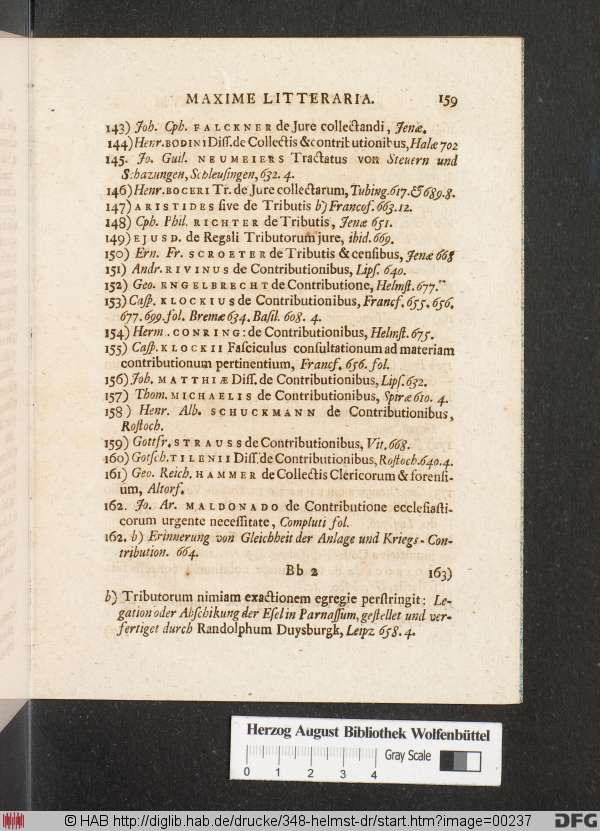 MAXIME LITTERARIA. 159
143) Joh. Cph. FALCKNER de Jure collectandi, Jenæ.
144) Henr. BODINI Diss. de Collectis & contributionibus, Halæ 702
145. Jo. Guil. NEUMEIERS Tractatus von Steuern und
Schazungen, Schleusingen, 632. 4.
146) Henr. BOCERI Tr. de Jure collectarum, Tubing. 617. & 689. 8.
147) ARISTIDES sive de Tributis b) Francof. 663. 12.
148) Cph. Phil. RICHTER de Tributis, Jenæ 651.
149) EJUSD. de Regali Tributorum jure, ibid. 669.
150) Ern. Fr. SCROETER de Tributis & censibus, Jenæ 668
151) Andr. RIVINUS de Contributionibus, Lips. 640.
152) Geo. ENGELBRECHT de Contributione, Helmst. 677.
153) Casp. KLOCKIUS de Contributionibus, Francf. 655. 656.
677. 699. fol. Bremæ 634. Basil. 608. 4.
154) Herm. CONRING: de Contributionibus, Helmst. 675.
155) Casp. KLOCKII Fasciculus consultationum ad materiam
contributionum pertinentium, Francf. 656. fol.
156) Joh. MATTHIÆ Diss. de Contributionibus, Lips. 632.
157) Thom. MICHAELIS de Contributionibus, Spiræ 610. 4.
158) Henr. Alb. SCHUCKMANN de Contributionibus,
Rostoch.
159) Gottfr. STRAUSS de Contributionibus, Vit. 668.
160) Gotsch. TILENII Diss. de Contributionibus, Rostoch. 640. 4.
161) Geo. Reich. HAMMER de Collectis Clericorum & forensi-
um, Altorf.
162. Jo. Ar. MALDONADO de Contributione ecclesiasti-
corum urgente necessitate, Compluti fol.
162. b) Erinnerung von Gleichheit der Anlage und Kriegs-Con-
tribution. 664.
Bb 2 163)
b) Tributorum nimiam exactionem egregie perstringit: Le-
gation oder Abschikung der Esel in Parnassum, gestellet und ver-
fertiget durch Randolphum Duysburgk, Leipz 658. 4.
Herzog August Bibliothek Wolfenbüttel
0 1 2 3 4 Gray Scale
© HAB http://diglib.hab.de/drucke/348-helmst-dr/start.htm?image=00237
DFG